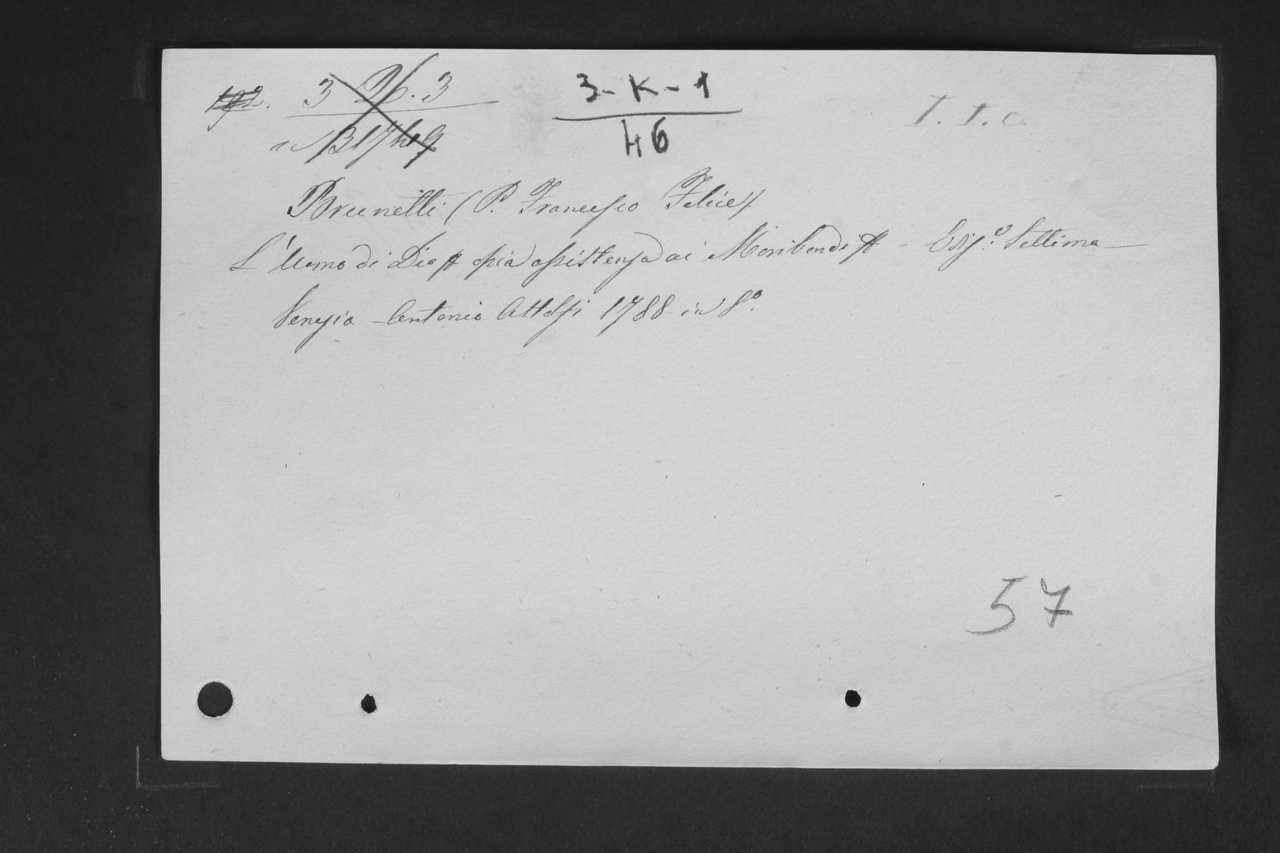 3 - K - 1
46
Brunelli (P. Francesco Felice)
L'Uomo di Dio pia assistenza ai Moribondi - Ediz.e Settima
Venezia - Antonio 1788 in 8.o
57